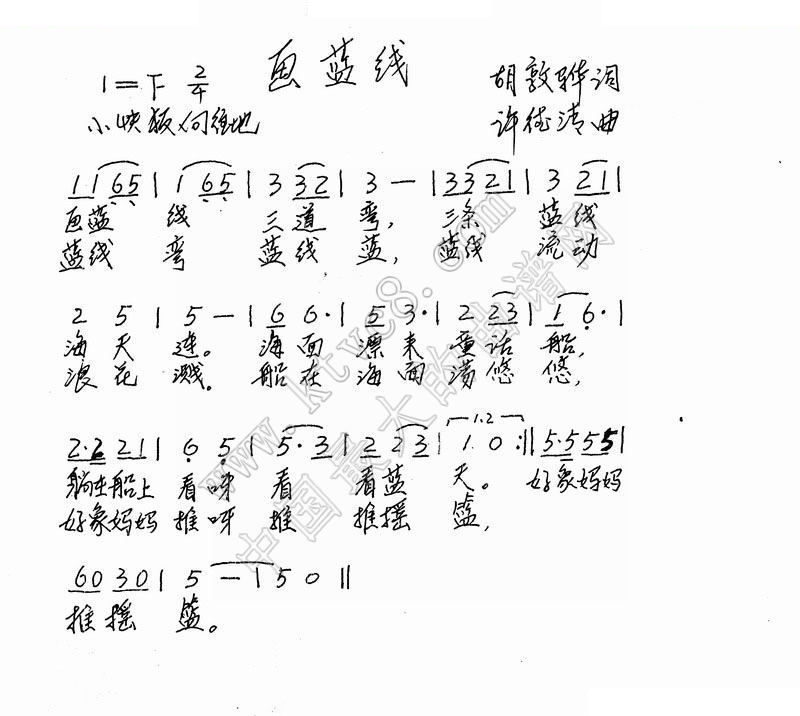 画蓝线
1=F 2/4
胡敦骅词
小快板 向往地
许德清曲
1 1 6 5 | 1 6 5 | 3 3 2 | 3 — | 3 3 2 1 | 3 2 1 |
画蓝 线 三道 弯, 三条 蓝线
蓝线 弯 蓝线 蓝, 蓝线 流动
2 5 | 5 — | 6 6· | 5 3· | 2 2 3 | 1 6· |
海天 连。 海面 漂来 童话 船,
浪花 溅。 船在 海面 荡悠 悠,
2·2 2 1 | 6 5 | 5·3 | 2 2 3 | 1 0 :‖ 5·5 5 5 |
1.2
躺在船上 看呀 看 看蓝 天。 好象妈妈
好象妈妈 推呀 推 推摇 篮,
6 0 3 0 | 5 — | 5 0 ‖
推摇 篮。
www.ktvc8.com
中国最大的曲谱网